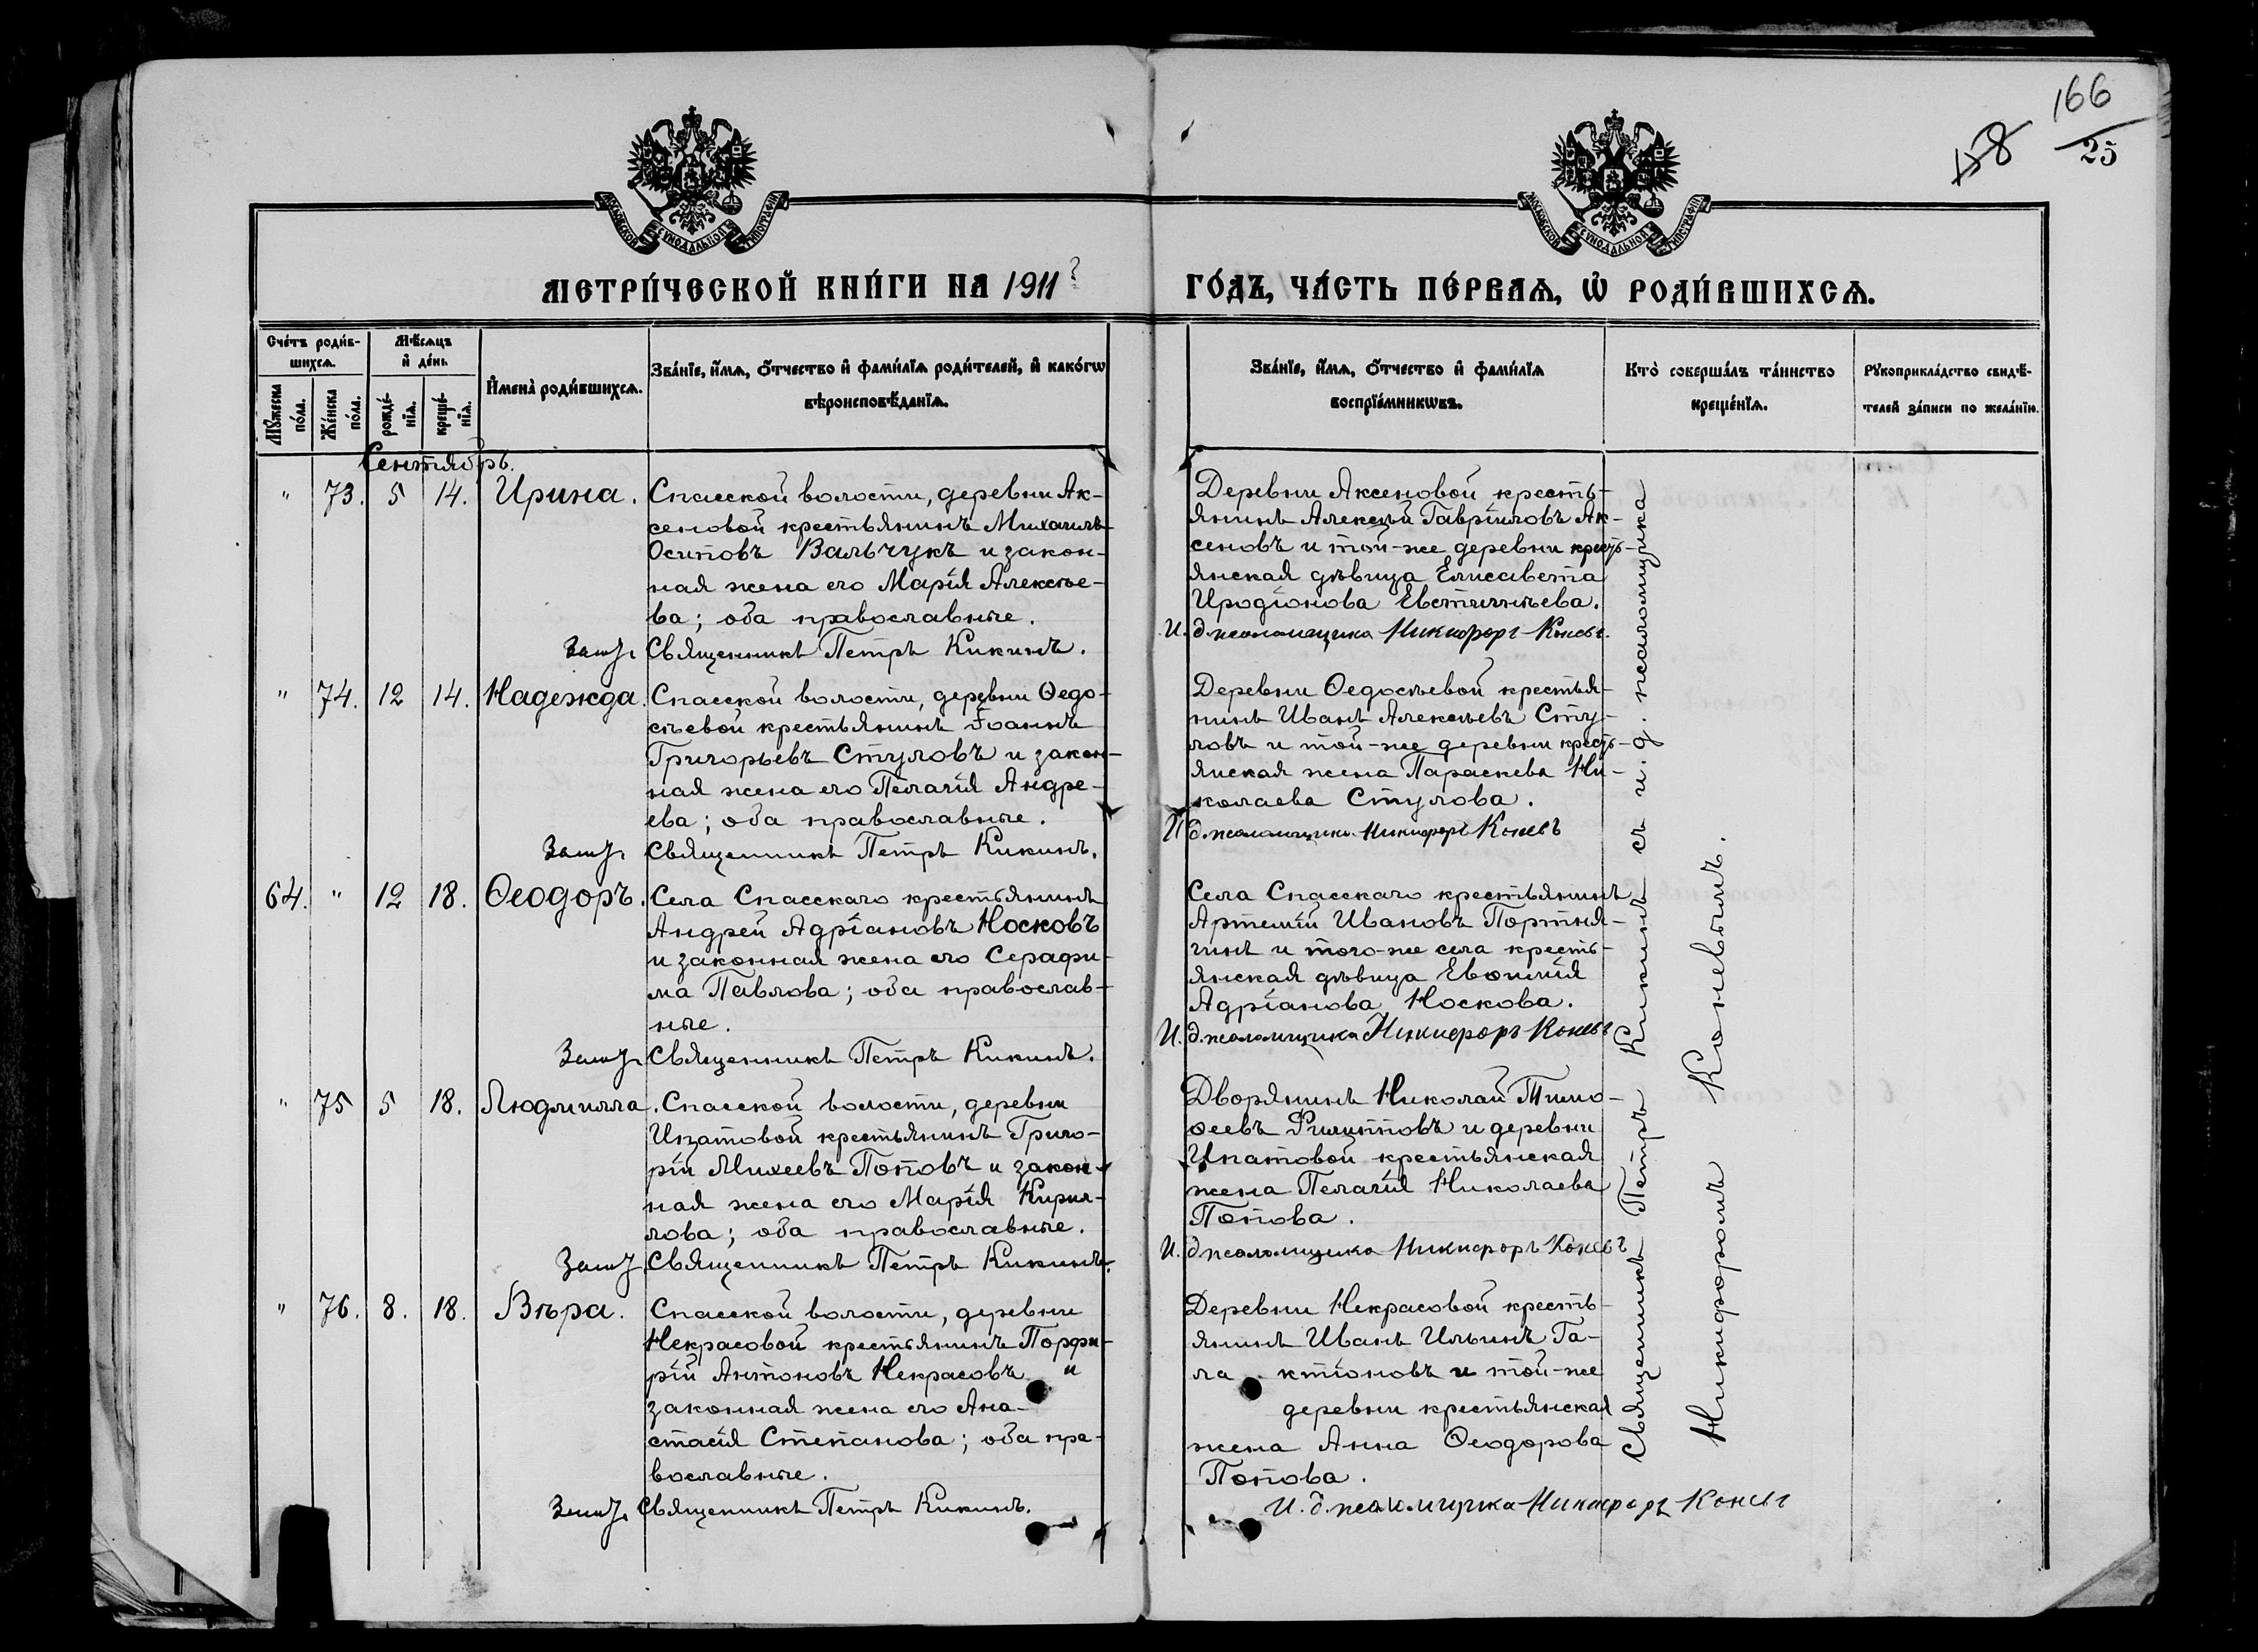 166
58
25
МОСКОВСКОЙ СѴНОДАЛЬНОЙ ТИПОГРАФІИ
МОСКОВСКОЙ СѴНОДАЛЬНОЙ ТИПОГРАФІИ
МЕТРИ́ЧЕСКОЙ КНИ́ГИ НА 1911
ГО́ДЪ, ЧА́СТЬ ПЕ́РВАѦ, Ѿ РОДИ́ВШИХСѦ.
Сче́тъ роди́в-
шихсѧ.
Мꙋ́жеска
по́ла.
Же́нска
по́ла.
Мѣ́сѧцъ
и҆ де́нь
рожде́-
нїѧ.
креще́-
нїѧ.
И҆мена̀ роди́вшихсѧ.
Зва́нїе, и҆́мѧ, ѻ҆́тчество и҆ фами́лїѧ роди́телей, и҆ како́гѡ
вѣроисповѣ́данїѧ.
Зва́нїе, и҆́мѧ, ѻ҆́тчество и҆ фами́лїѧ
воспрїе́мникѡвъ.
Кто̀ соверша́лъ та́инство
креще́нїѧ.
Рꙋкоприкла́дство свидѣ́-
телей за́писи по жела́нїю.
Сентябрь.
" 73. 5 14. Ирина.
Спасской волости, деревни Ак-
сеновой крестьянинъ Михаилъ
Осиповъ Вальчукъ и закон-
ная жена его Марія Алексѣе-
ва; оба православные.
Священникъ Петръ Кикинъ.
Деревни Аксеновой кресть-
янинъ Алексѣй Гавріиловъ Ак-
сеновъ и той-же деревни кресть-
янская дѣвица Елисавета
Иродіонова Евстигнѣева.
И. д. псаломщика Никифоръ Коневъ.
" 74. 12 14. Надежда.
Спасской волости, деревни Ѳедо-
сѣевой крестьянинъ Іоаннъ
Григорьевъ Стуловъ и закон-
ная жена его Пелагія Андре-
ева; оба православные.
Священникъ Петръ Кикинъ.
Деревни Ѳедосѣевой крестья-
нинъ Иванъ Алексѣевъ Сту-
ловъ и той-же деревни кресть-
янская жена Параскева Ни-
колаева Стулова.
И д. псаломщика Никифоръ Коневъ
64. " 12 18. Ѳеодоръ.
Села Спасскаго крестьянинъ
Андрей Адріановъ Носковъ
и законная жена его Серафи-
ма Павлова; оба православ-
ные.
Священникъ Петръ Кикинъ.
Села Спасскаго крестьянинъ
Артемій Ивановъ Портня-
гинъ и того-же села кресть-
янская дѣвица Евѳимія
Адріанова Носкова.
И. д. псаломщика Никифоръ Коневъ
" 75 5 18. Людмилла.
Спасской волости, деревни
Ипатовой крестьянинъ Григо-
рій Михеевъ Поповъ и закон-
ная жена его Марія Кирил-
лова; оба православные.
Священникъ Петръ Кикинъ.
Дворянинъ Николай Тимо-
ѳеевъ Филипповъ и деревни
Ипатовой крестьянская
жена Пелагія Николаева
Попова.
И. д псаломщика Никифоръ Коневъ
" 76. 8. 18. Вѣра.
Спасской волости, деревни
Некрасовой крестьянинъ Порфи-
рій Антоновъ Некрасовъ и
законная жена его Ана-
стасія Степанова; оба пра-
вославные.
Священникъ Петръ Кикинъ.
Деревни Некрасовой кресть-
янинъ Иванъ Ильинъ Га-
ла ктіоновъ и той-же
деревни крестьянская
жена Анна Ѳеодорова
Попова.
И. д. псаломщика Никифоръ Коневъ
Священникъ Петръ Кикинъ съ и. д. псаломщика
Никифоромъ Коневымъ.